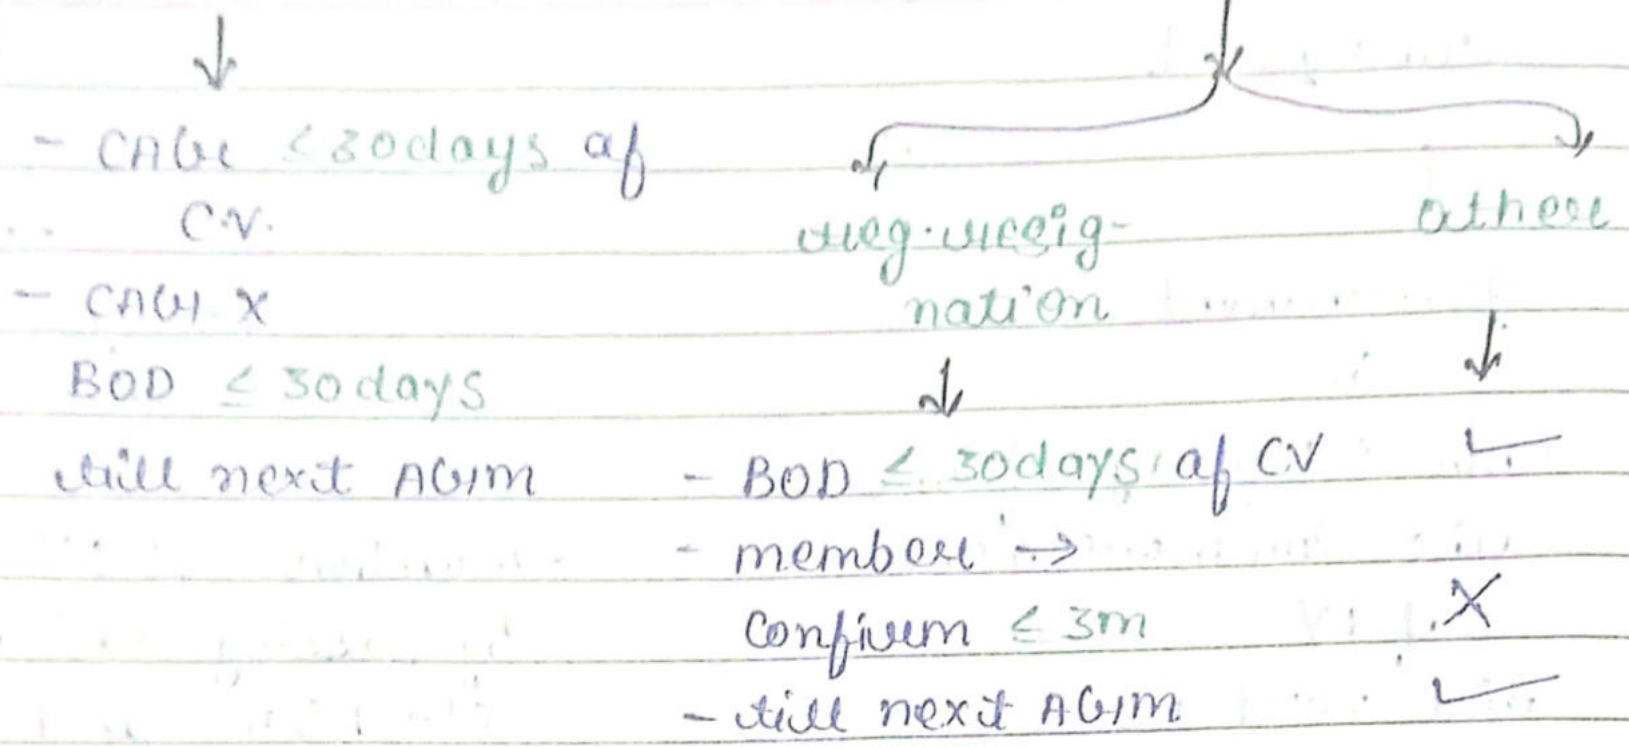 - CAG ≤ 30days of
C.V.
- CAG X
BOD ≤ 30days
till next AGM
reg. resig-
nation
other
- BOD ≤ 30days of CV ✓
- member →
confirm ≤ 3m X
- till next AGM ✓